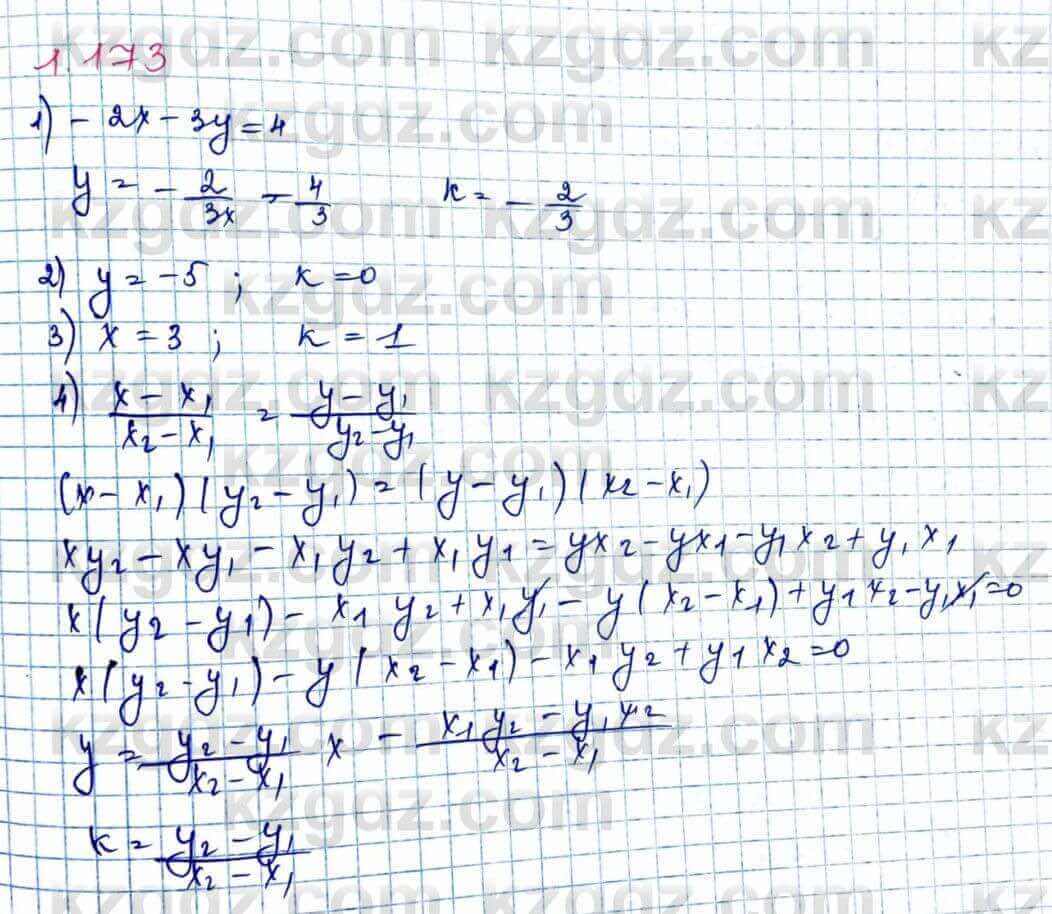 1.173
1) - 2x - 3y = 4
y = - 2/3x - 4/3 k = - 2/3
2) y = -5 ; k = 0
3) x = 3 ; k = 1
4) (x - x₁)/(x₂ - x₁) = (y - y₁)/(y₂ - y₁)
(x - x₁)(y₂ - y₁) = (y - y₁)(x₂ - x₁)
xy₂ - xy₁ - x₁y₂ + x₁y₁ = yx₂ - yx₁ - y₁x₂ + y₁x₁
x(y₂ - y₁) - x₁y₂ + x₁y₁ - y(x₂ - x₁) + y₁x₂ - y₁x₁ = 0
x(y₂ - y₁) - y(x₂ - x₁) - x₁y₂ + y₁x₂ = 0
y = (y₂ - y₁)/(x₂ - x₁) x - (x₁y₂ - y₁x₂)/(x₂ - x₁)
k = (y₂ - y₁)/(x₂ - x₁)
kzgdz.com